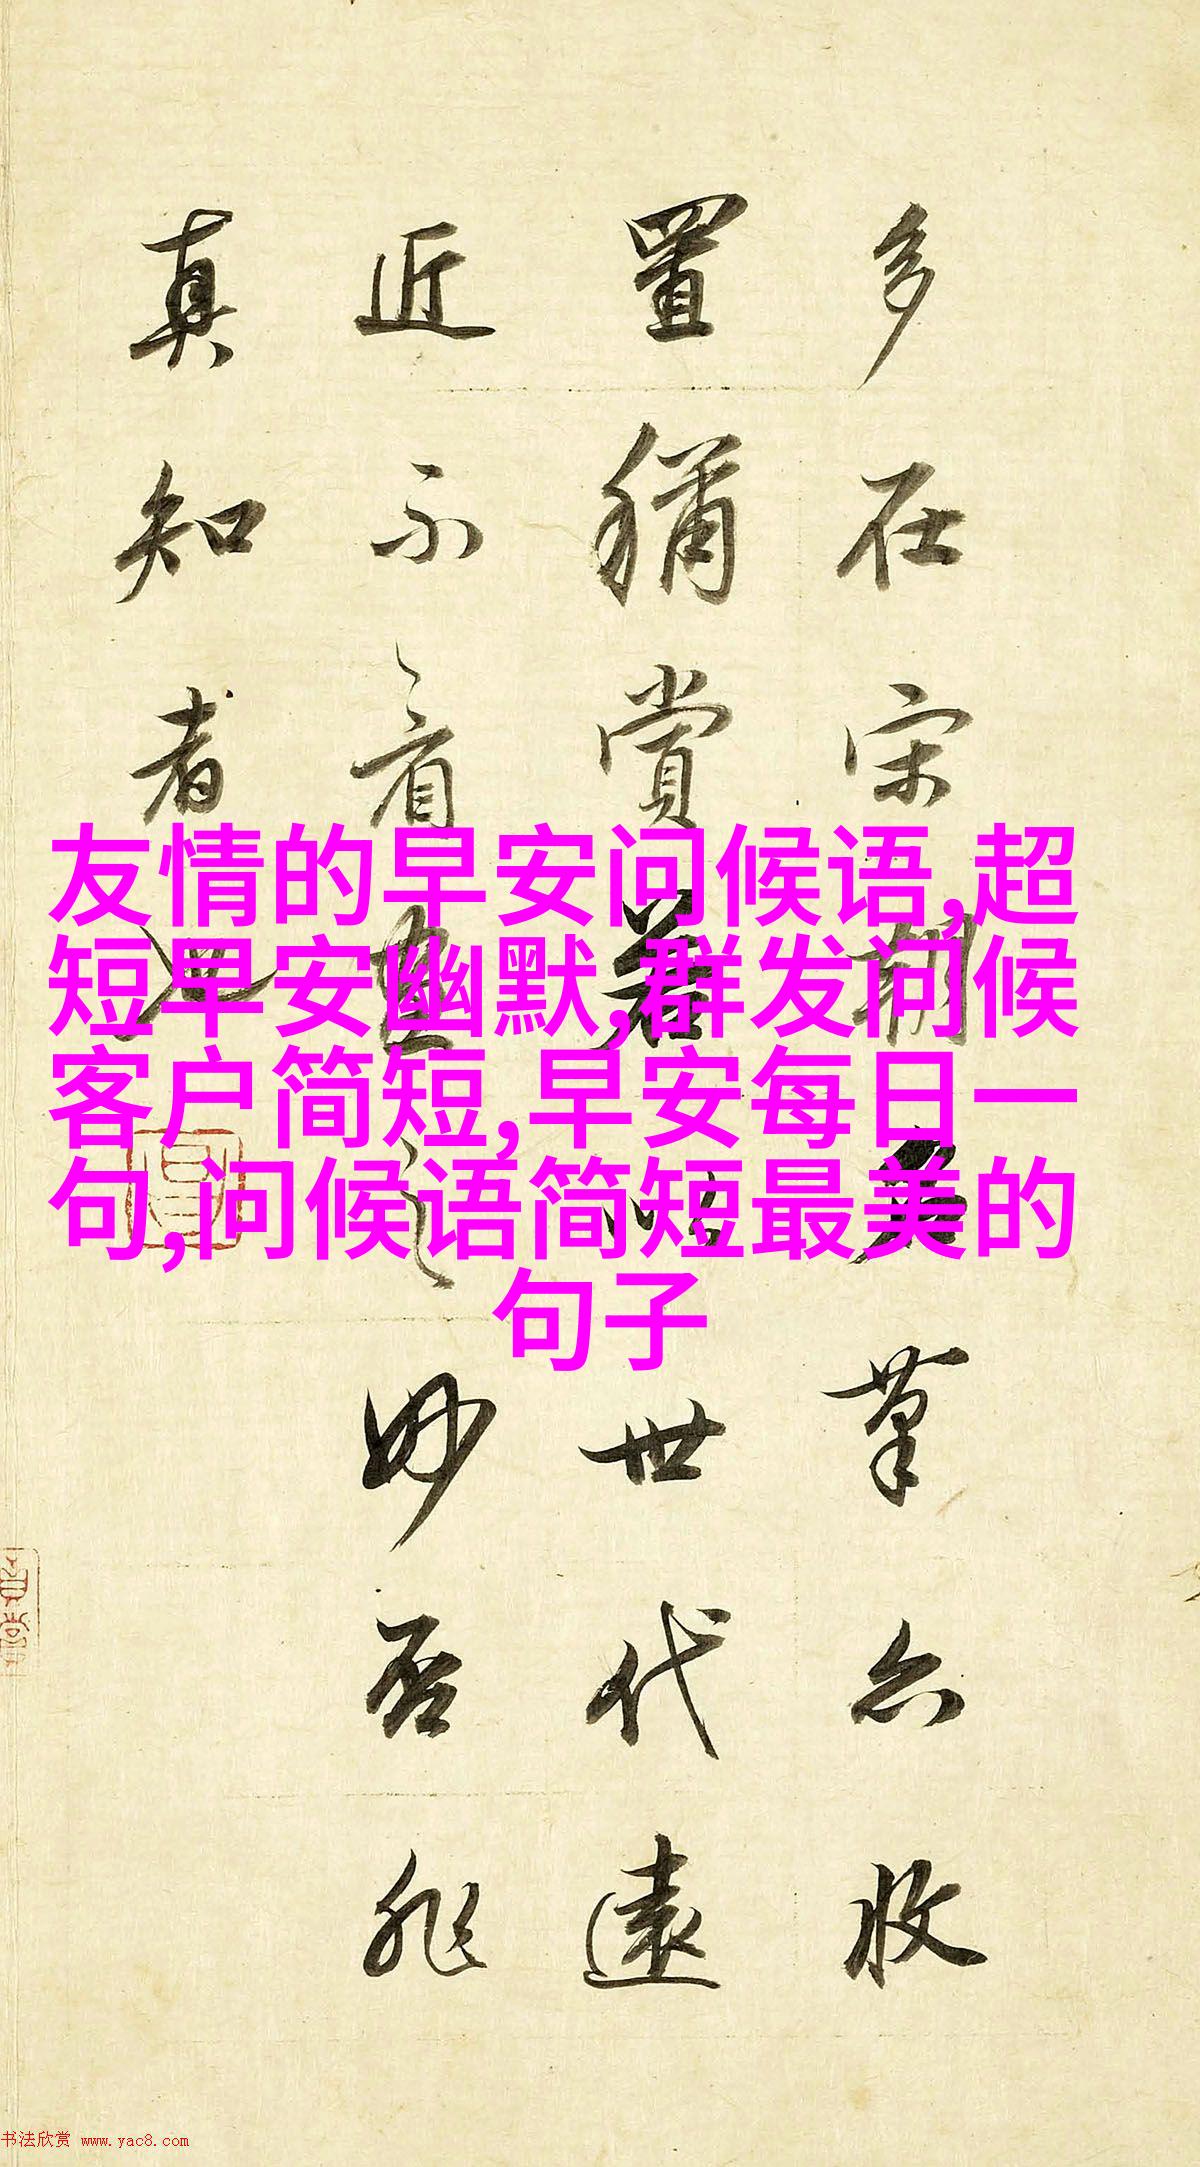 多在宋朝筆亦收
置猶賞若以世代遠
近不看畫之妙否非
真知者也
友情的早安问候语,超
短早安幽默,群发问候
客户简短,早安每日一
句,问候语简短最美的
句子
书法欣赏 www.yac8.com